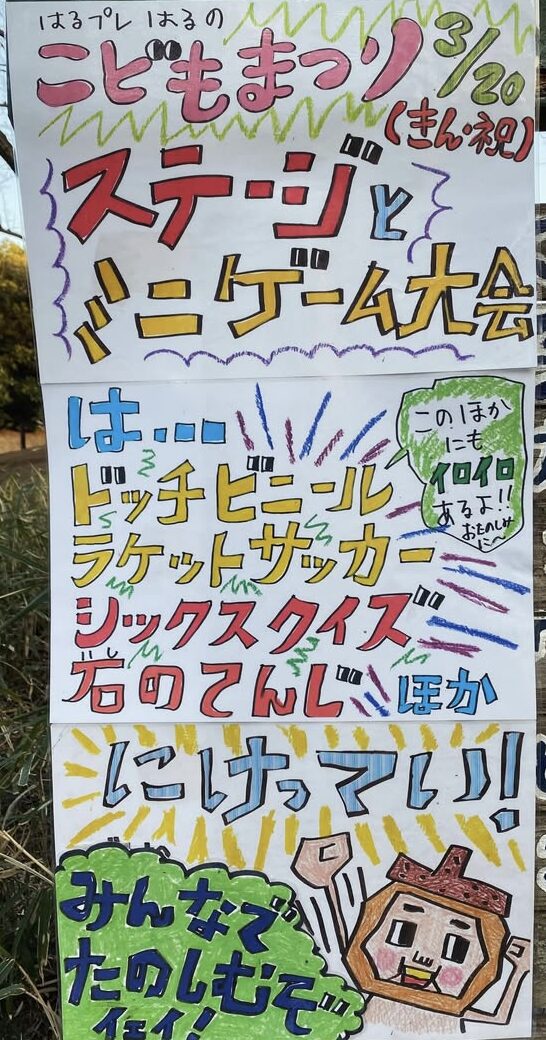 はるプレ はるの
こどもまつり 3/20
(きん・祝)
ステージと
ミニゲーム大会
は…
このほか
にも
イロイロ
あるよ!!
おたのしみ
に～
ドッチビニール
ラケットサッカー
シックスクイズ
いし
石のてんじ ほか
にけってい!
みんなで
たのしむぞ
イェイ!